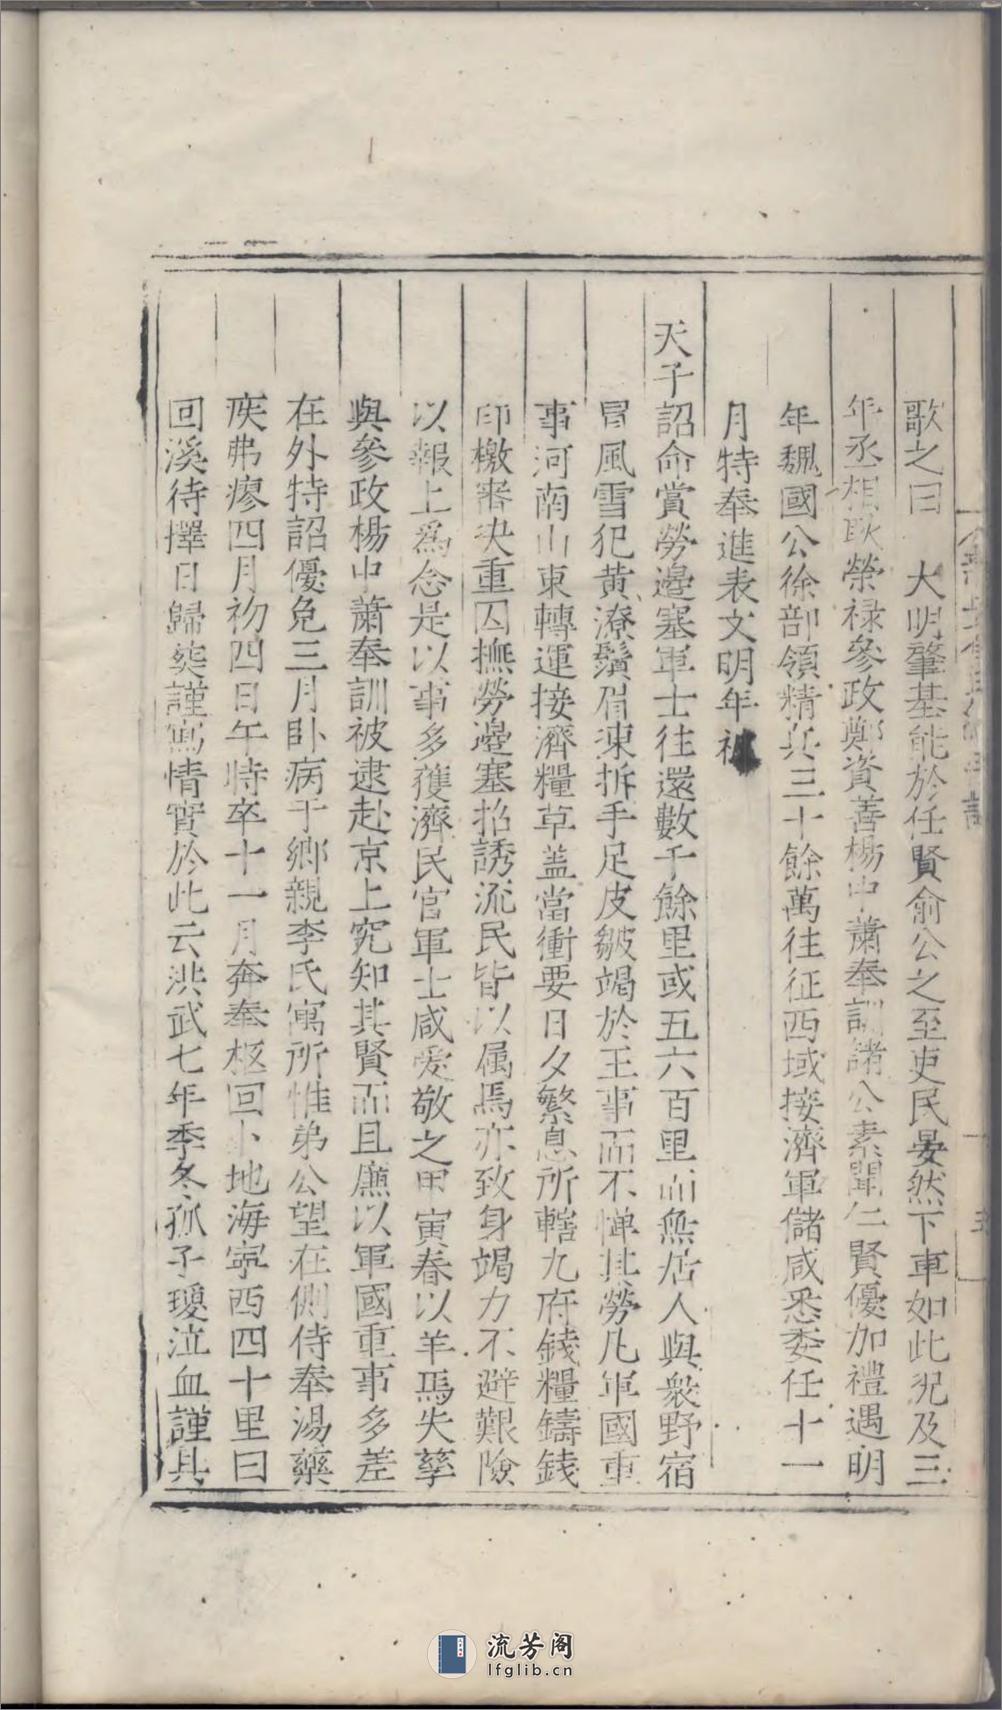 歌之曰　大明肇基能於任賢俞公之至吏民晏然下車如此況及三
年丞相耿榮祿參政鄭資善楊中蕭奉訓諸公素聞仁賢優加禮遇明
年魏國公徐部領精兵三十餘萬往征西域接濟軍儲咸悉委任十一
月特奉進表文明年初
天子詔命賞勞邊塞軍士往還數千餘里或五六百里而無居人與衆野宿
冒風雪犯黃潦鬚眉凍拆手足皮皴竭於王事而不憚其勞凡軍國重
事河南山東轉運接濟糧草盖當衝要日夕繁息所轄九府錢糧鑄錢
印檄審決重囚撫勞邊塞招誘流民皆以属焉亦致身竭力不避艱險
以報上爲念是以事多獲濟民官軍士咸愛敬之甲寅春以羊馬失孳
與參政楊中蕭奉訓被逮赴京上究知其賢而且廉以軍國重事多差
在外特詔優免三月卧病于鄉親李氏寓所惟弟公望在側侍奉湯藥
疾弗瘳四月初四日午時卒十一月奔奉柩回卜地海寧西四十里曰
回溪待擇日歸葬謹寫情實於此云洪武七年季冬孤子瓊泣血謹具
流芳阁
lfglib.cn